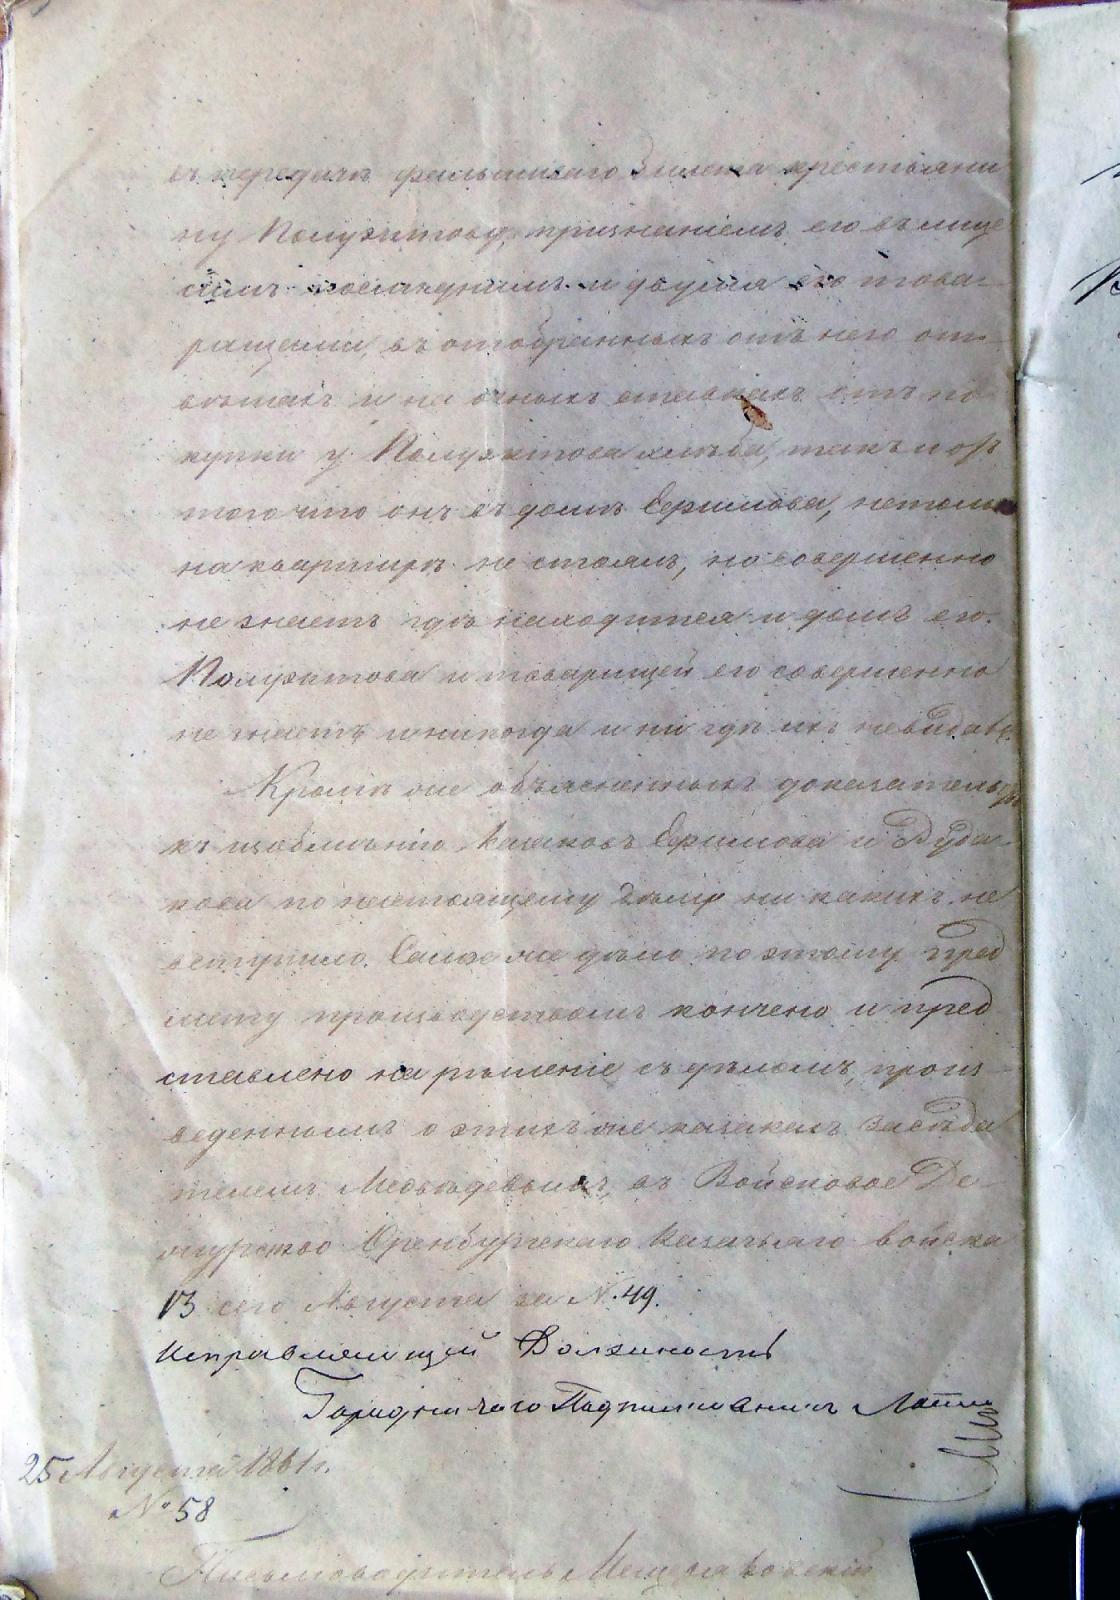 въ передачѣ фальшиваго билета крестьяни
ну Полуэктову, признаніемъ его въ лице
симъ послѣднимъ и двумя его това-
рищами, въ отобранныхъ отъ него от-
вѣтахъ и на очныхъ ставкахъ отъ по
купки у Полуэктова хлѣба, такъ и отъ
того что онъ въ домѣ Ефимова, нетоль
на квартирѣ не стоялъ, но совершенно
не знаетъ гдѣ находится и домъ его.
Полуэктова и товарищей его совершенно
не знаетъ и никогда и ни гдѣ ихъ невидалъ.
Кромѣ же объясненныхъ доказательствъ
къ изобличенію казаковъ Ефимова и Руда-
кова по настоящему дѣлу ни какихъ не
открыто. Самое же дѣло по этому пред
мету производствомъ кончено и пред
ставлено на рѣшеніе съ дѣломъ, произ-
веденнымъ о этихъ же казакахъ Засѣда
телемъ Медвѣдевымъ, въ Войсковое Де-
журство Оренбургскаго казачьяго войска
13 сего Августа за N. 49.
Исправляющій Должность
Городничаго Подполковникъ
25 Августа 1861 г.
№ 58
Письмоводитель Мещеряковскій